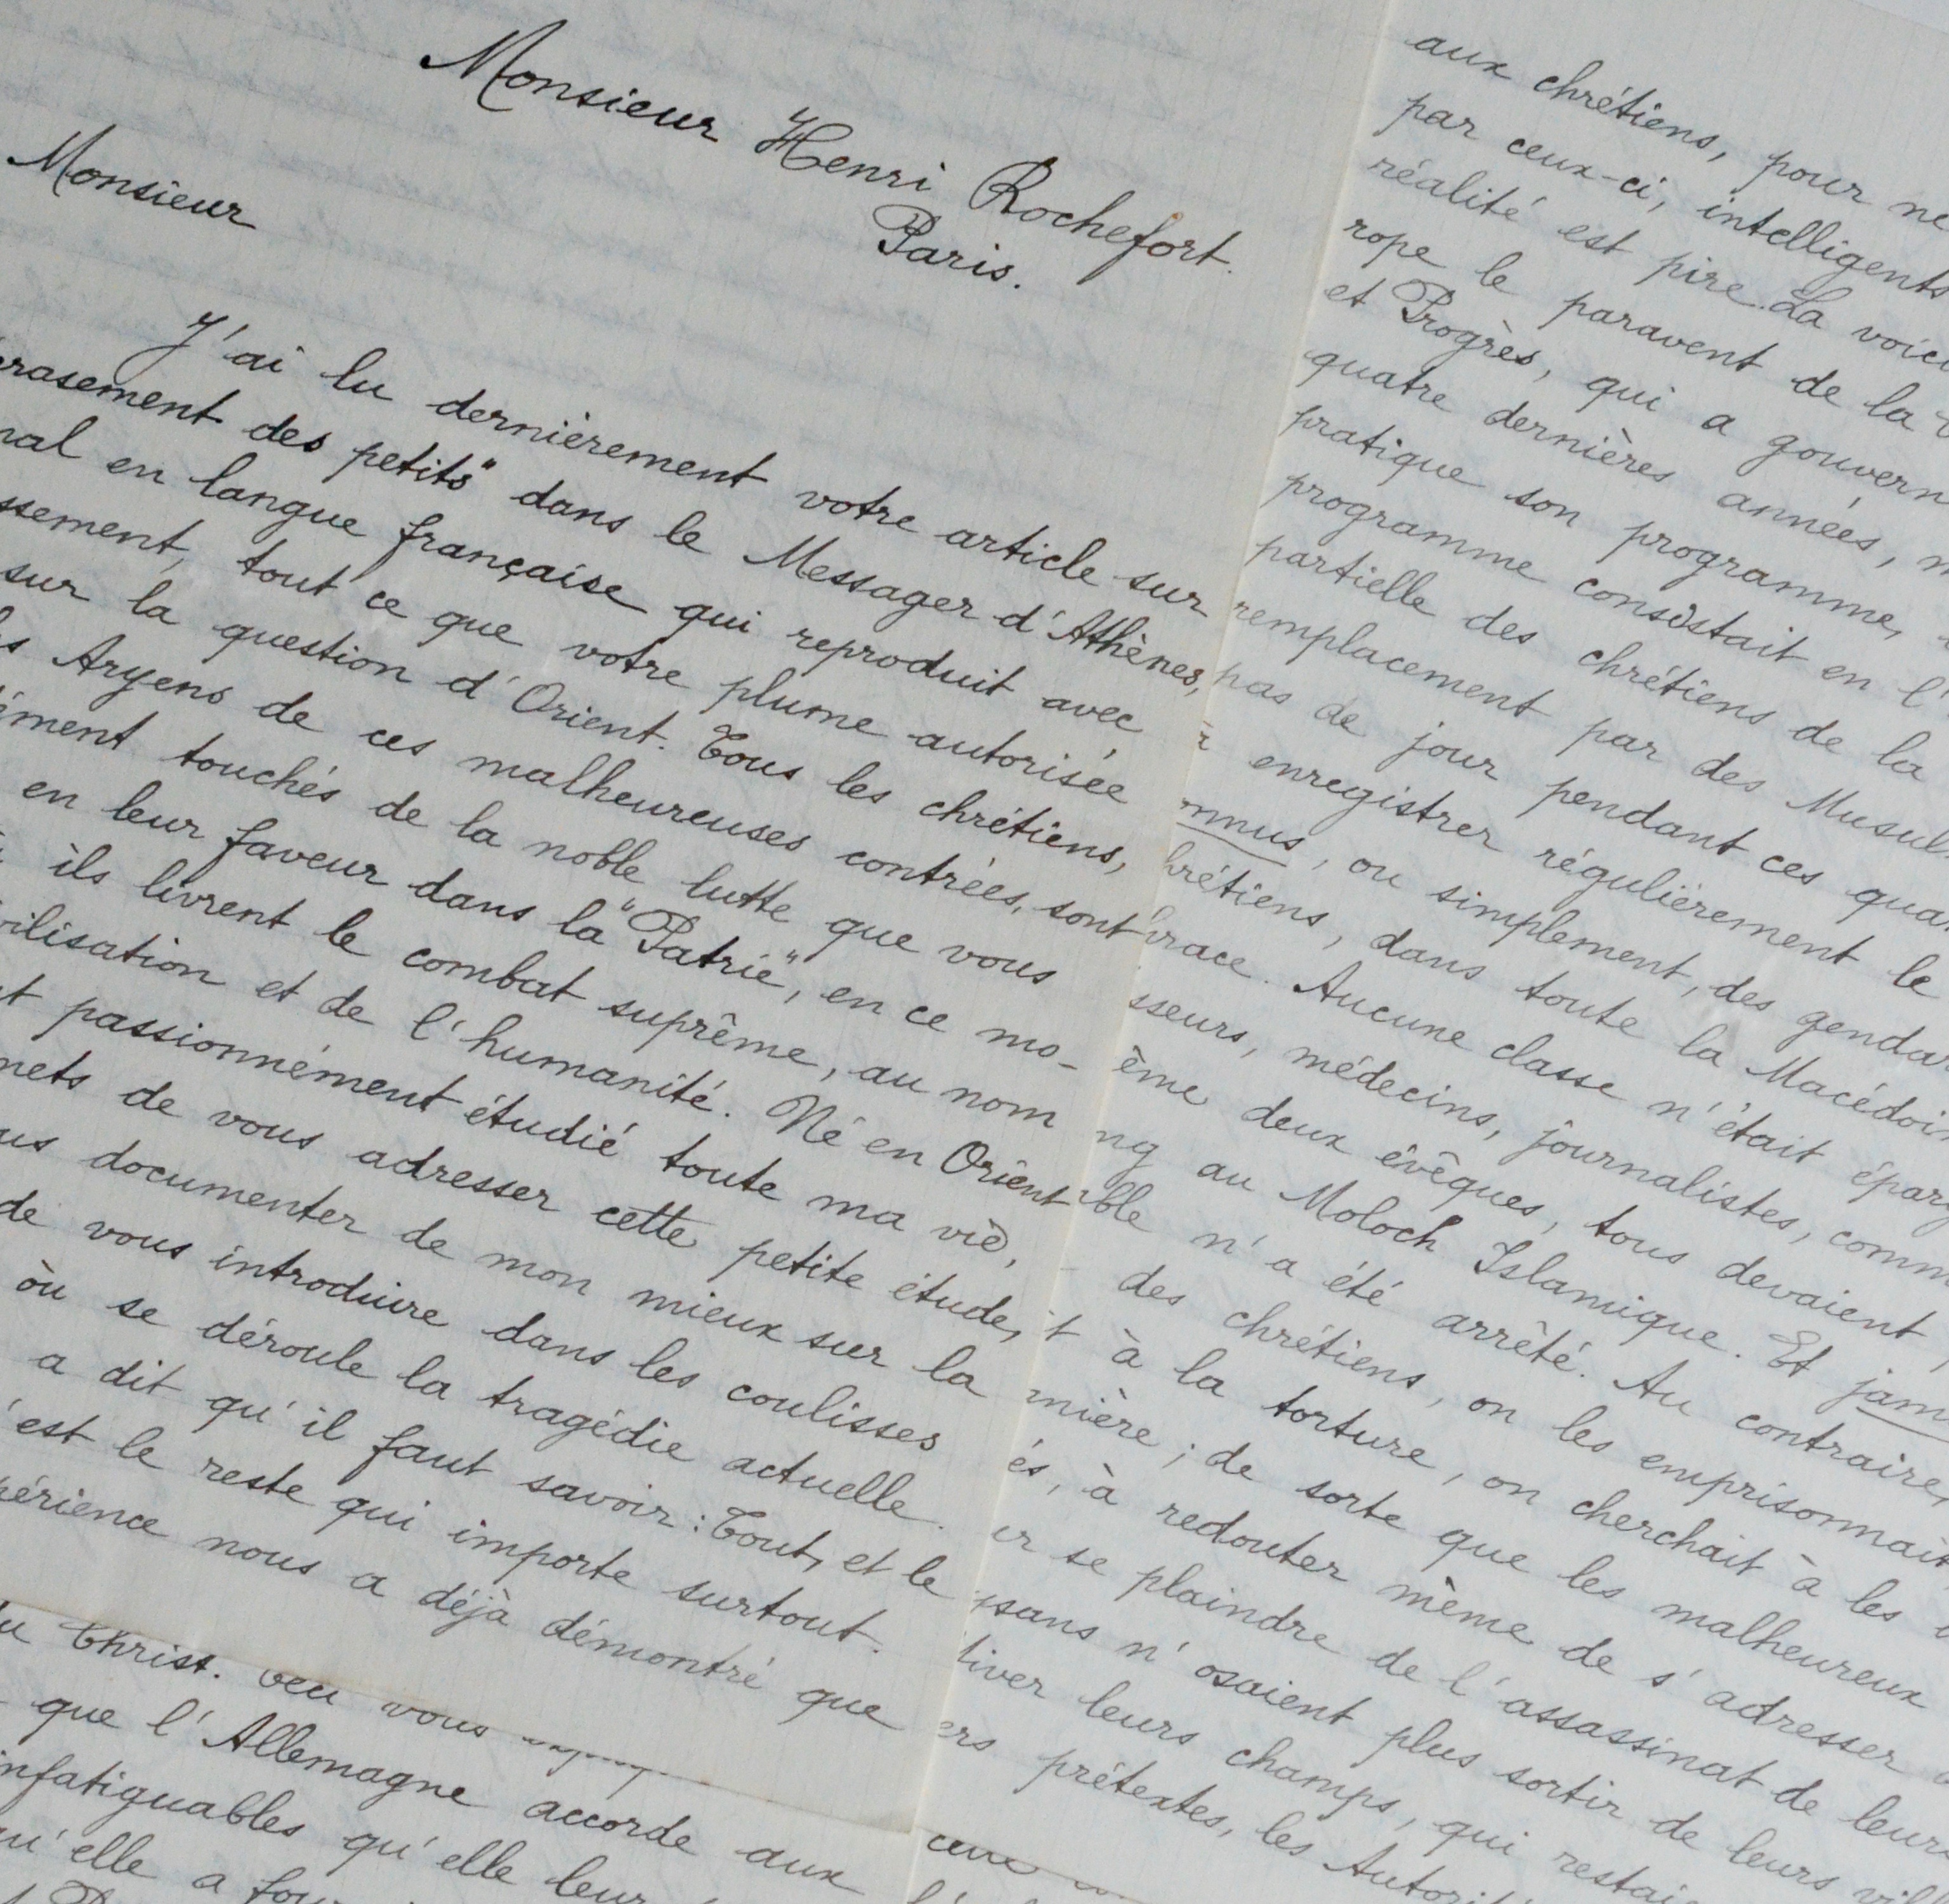 Monsieur Henri Rochefort.
Paris.
Monsieur
J'ai lu dernièrement votre article sur
rasement des petits" dans le Messager d'Athènes,
nal en langue française qui reproduit avec
ssement, tout ce que votre plume autorisée
sur la question d'Orient. Tous les chrétiens,
s Aryens de ces malheureuses contrées, sont
ément touchés de la noble lutte que vous
en leur faveur dans la "Patrie", en ce mo-
ils livrent le combat suprême, au nom
vilisation et de l'humanité. Né en Orient
t passionnément étudié toute ma vie,
mets de vous adresser cette petite étude,
us documenter de mon mieux sur la
de vous introduire dans les coulisses
où se déroule la tragédie actuelle.
a dit qu'il faut savoir: Tout, et le
'est le reste qui importe surtout.
périence nous a déjà démontré que
u Christ. vous
que l'Allemagne accorde aux
nfatiguables qu'elle leur
u'elle a
aux chrétiens, pour ne
par ceux-ci, intelligents
réalité est pire. La voici
rope le paravent de la
et Progrès, qui a gouvern
quatre dernières années, m
pratique son programme,
programme consistait en l'
partielle des chrétiens de la
remplacement par des Musul
pas de jour pendant ces qua
à enregistrer régulièrement le
nnus, ou simplement, des gendar
hrétiens, dans toute la Macédoi
hrace. Aucune classe n'était épar
sseurs, médecins, journalistes, comm
ême deux évêques, tous devaient
ng au Moloch Islamique. Et jam
ble n'a été arrêté. Au contraire,
des chrétiens, on les emprisonnait
t à la torture, on cherchait à les
mière; de sorte que les malheureux
és, à redouter même de s'adresser
er se plaindre de l'assassinat de leurs
ysans n'osaient plus sortir de leurs vill
tiver leurs champs, qui restai
ers prétextes, les Autori